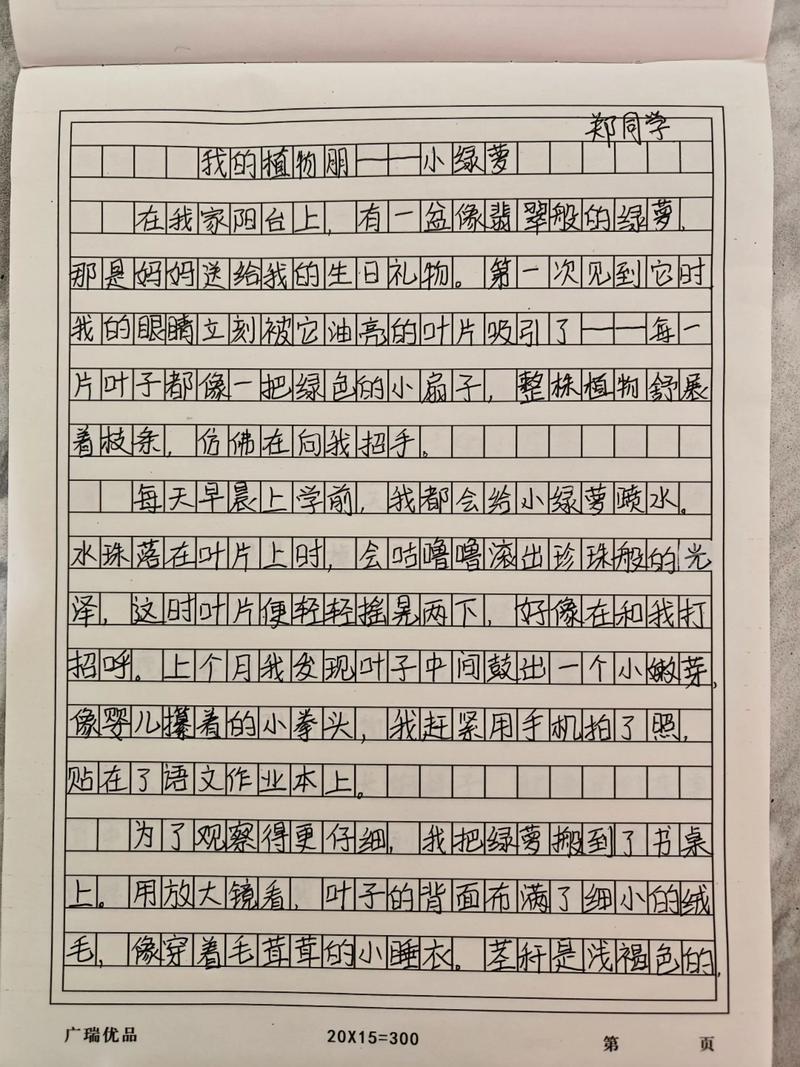 郑同学
我的植物朋——小绿萝
在我家阳台上，有一盆像翡翠般的绿萝，
那是妈妈送给我的生日礼物。第一次见到它时
我的眼睛立刻被它油亮的叶片吸引了——每一
片叶子都像一把绿色的小扇子，整株植物舒展
着枝条，仿佛在向我招手。
每天早晨上学前，我都会给小绿萝喷水。
水珠落在叶片上时，会咕噜噜滚出珍珠般的光
泽，这时叶片便轻轻摇晃两下，好像在和我打
招呼。上个月我发现叶子中间鼓出一个小嫩芽，
像婴儿攥着的小拳头，我赶紧用手机拍了照，
贴在了语文作业本上。
为了观察得更仔细，我把绿萝搬到了书桌
上。用放大镜看，叶子的背面布满了细小的绒
毛，像穿着毛茸茸的小睡衣。茎秆是浅褐色的，
广瑞优品
20X15=300
第 页